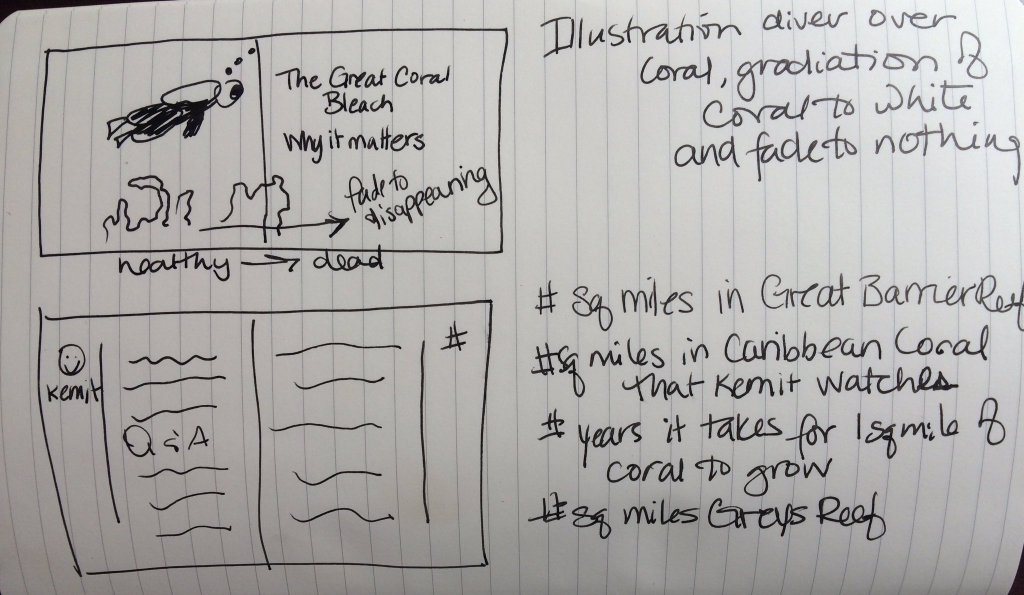 The Great Coral
Bleach
Why it matters
fade to
disappearing
healthy → dead
Illustration diver over
Coral, gradiation of
Coral to white
and fade to nothing
Kemit
Q & A
#
# sq miles in Great Barrier Reef
# sq miles in Caribbean Coral
that Kemit watches
# years it takes for 1 sq mile of
coral to grow
# sq miles Greys Reef